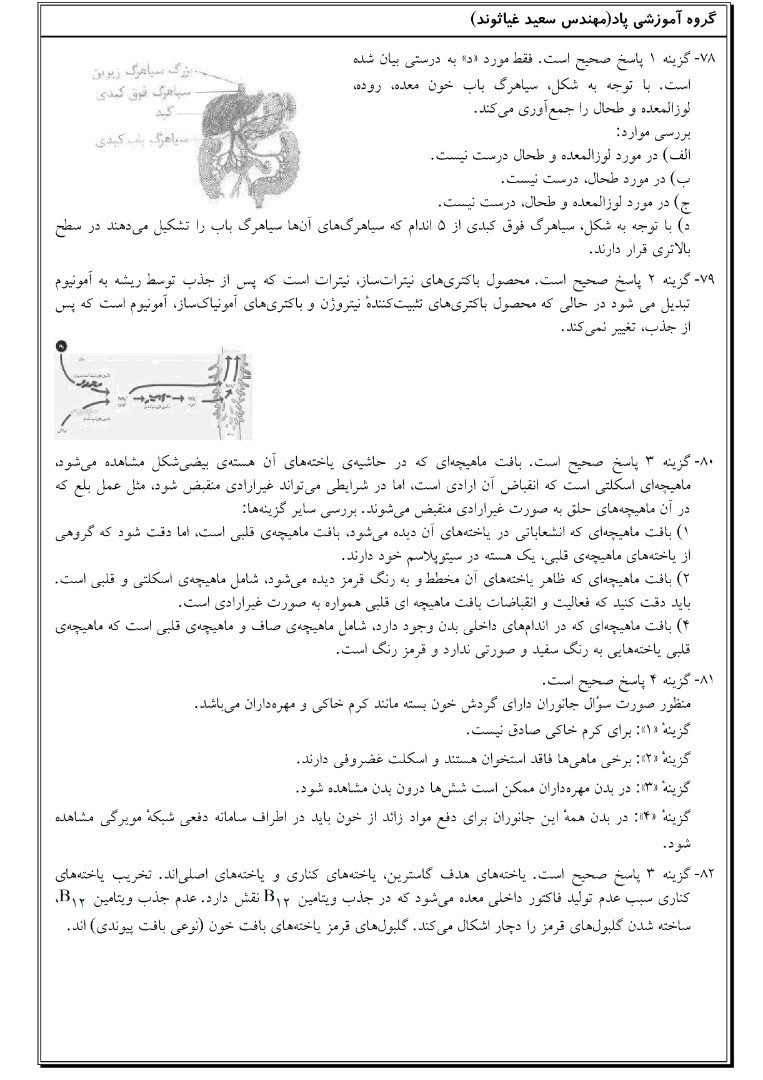 گروه آموزشی پاد(مهندس سعید غیاثوند)
۷۸- گزینه ۱ پاسخ صحیح است. فقط مورد «د» به درستی بیان شده
است. با توجه به شکل، سیاهرگ باب خون معده، روده،
لوزالمعده و طحال را جمع‌آوری می‌کند.
بررسی موارد:
الف) در مورد لوزالمعده و طحال درست نیست.
ب) در مورد طحال، درست نیست.
ج) در مورد لوزالمعده و طحال، درست نیست.
بزرگ سیاهرگ زیرین
سیاهرگ فوق کبدی
کبد
سیاهرگ باب کبدی
د) با توجه به شکل، سیاهرگ فوق کبدی از ۵ اندام که سیاهرگ‌های آن‌ها سیاهرگ باب را تشکیل می‌دهند در سطح
بالاتری قرار دارند.
۷۹- گزینه ۲ پاسخ صحیح است. محصول باکتری‌های نیترات‌ساز، نیترات است که پس از جذب توسط ریشه به آمونیوم
تبدیل می شود در حالی که محصول باکتری‌های تثبیت‌کنندهٔ نیتروژن و باکتری‌های آمونیاک‌ساز، آمونیوم است که پس
از جذب، تغییر نمی‌کند.
۸۰- گزینه ۳ پاسخ صحیح است. بافت ماهیچه‌ای که در حاشیه‌ی یاخته‌های آن هسته‌ی بیضی‌شکل مشاهده می‌شود،
ماهیچه‌ای اسکلتی است که انقباض آن ارادی است، اما در شرایطی می‌تواند غیرارادی منقبض شود، مثل عمل بلع که
در آن ماهیچه‌های حلق به صورت غیرارادی منقبض می‌شوند. بررسی سایر گزینه‌ها:
۱) بافت ماهیچه‌ای که انشعاباتی در یاخته‌های آن دیده می‌شود، بافت ماهیچه‌ی قلبی است، اما دقت شود که گروهی
از یاخته‌های ماهیچه‌ی قلبی، یک هسته در سیتوپلاسم خود دارند.
۲) بافت ماهیچه‌ای که ظاهر یاخته‌های آن مخطط و به رنگ قرمز دیده می‌شود، شامل ماهیچه‌ی اسکلتی و قلبی است.
باید دقت کنید که فعالیت و انقباضات بافت ماهیچه ای قلبی همواره به صورت غیرارادی است.
۴) بافت ماهیچه‌ای که در اندام‌های داخلی بدن وجود دارد، شامل ماهیچه‌ی صاف و ماهیچه‌ی قلبی است که ماهیچه‌ی
قلبی یاخته‌هایی به رنگ سفید و صورتی ندارد و قرمز رنگ است.
۸۱- گزینه ۴ پاسخ صحیح است.
منظور صورت سؤال جانوران دارای گردش خون بسته مانند کرم خاکی و مهره‌داران می‌باشد.
گزینهٔ «۱»: برای کرم خاکی صادق نیست.
گزینهٔ «۲»: برخی ماهی‌ها فاقد استخوان هستند و اسکلت غضروفی دارند.
گزینهٔ «۳»: در بدن مهره‌داران ممکن است شش‌ها درون بدن مشاهده شود.
گزینهٔ «۴»: در بدن همهٔ این جانوران برای دفع مواد زائد از خون باید در اطراف سامانه دفعی شبکهٔ مویرگی مشاهده
شود.
۸۲- گزینه ۳ پاسخ صحیح است. یاخته‌های هدف گاسترین، یاخته‌های کناری و یاخته‌های اصلی‌اند. تخریب یاخته‌های
کناری سبب عدم تولید فاکتور داخلی معده می‌شود که در جذب ویتامین B۱۲ نقش دارد. عدم جذب ویتامین B۱۲،
ساخته شدن گلبول‌های قرمز را دچار اشکال می‌کند. گلبول‌های قرمز یاخته‌های بافت خون (نوعی بافت پیوندی) اند.